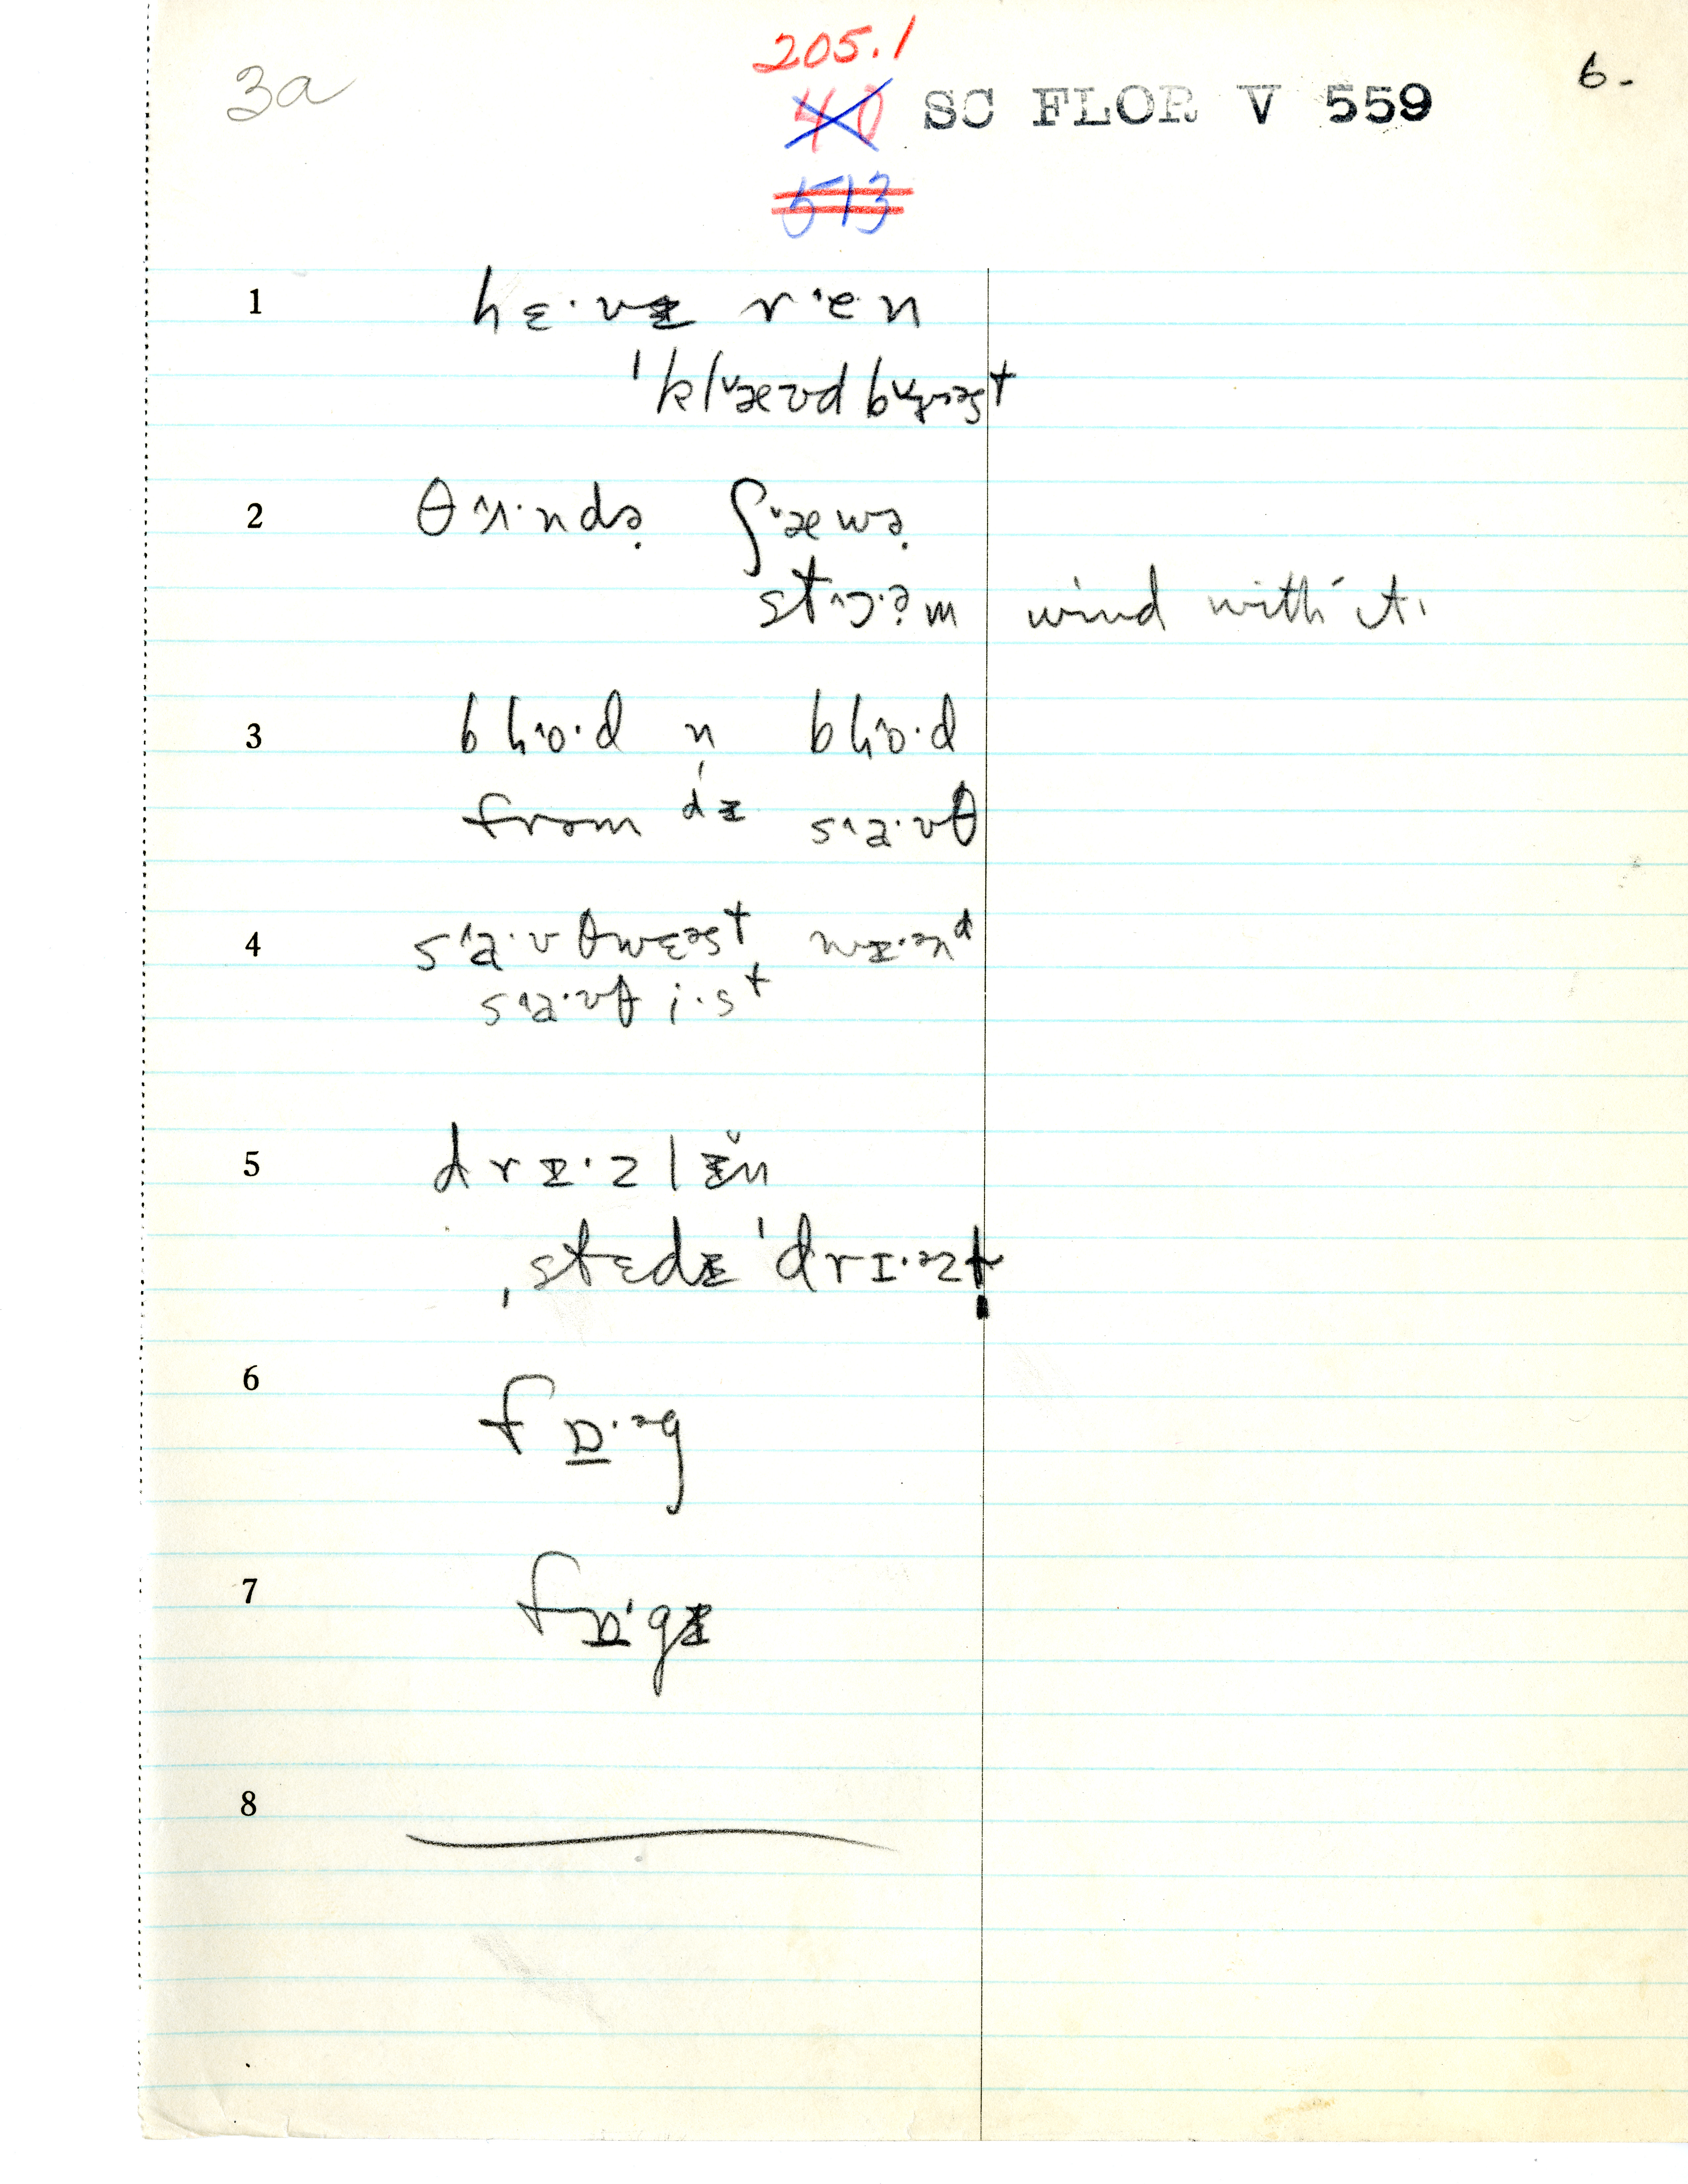 3a
205.1
40 SC FLOR V 559
6-
513
1 hɛ·vɪ rˈe·n
ˈklˇæʊd bɜst
2 θʌ·ndə ʃˇæwə
stɔ·əm wind with it.
3 blo·d n blo·d
from dɪ sa·ʊθ
4 sa·ʊθwɛəst wɪ·ən d
sa·ʊθ i·st
5 drɪ·zlɪn
ˌstɛdɪ ˈdrɪ·əzt
6 fɒ·əg
7 fɒ·gɪ
8